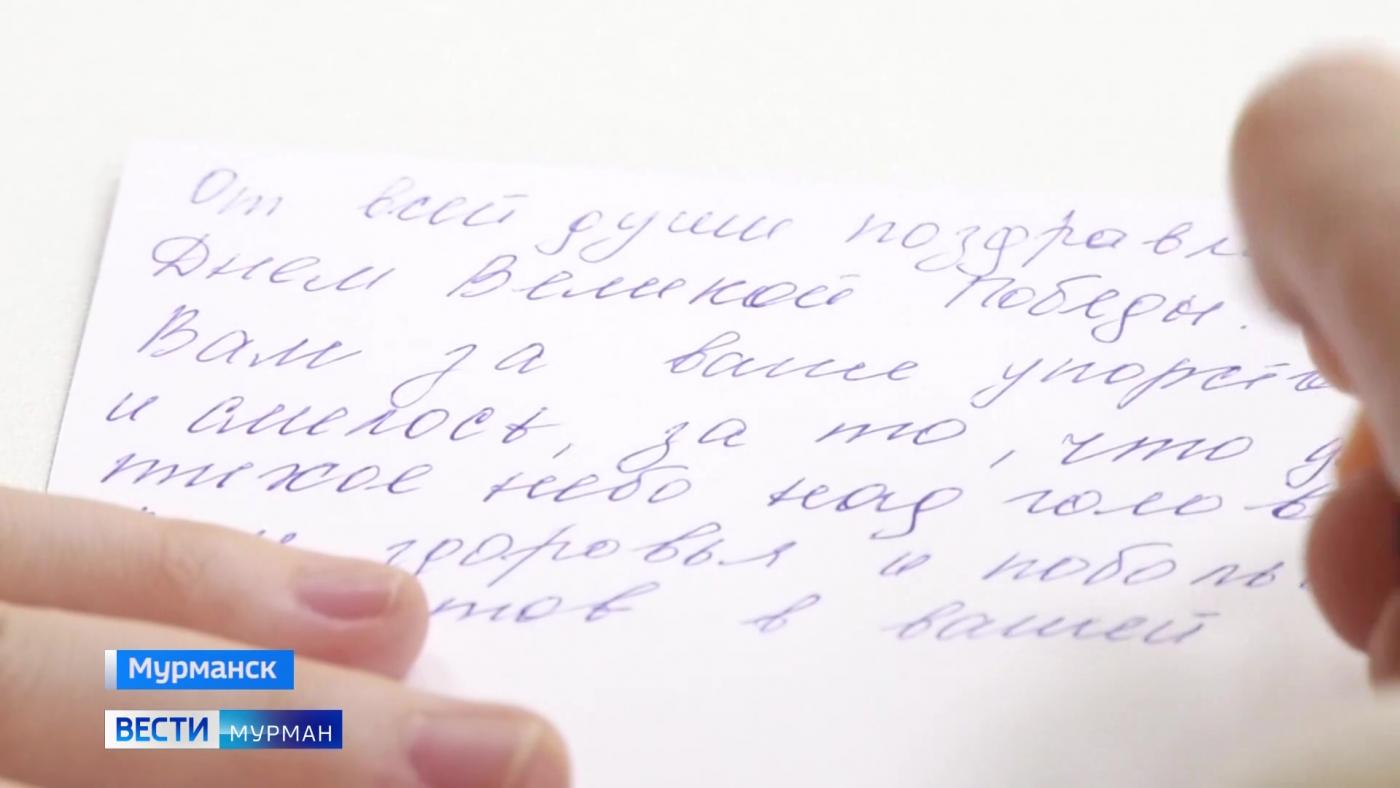 От всей души поздравл
Днем Великой Победы.
Вам за ваше упорств
и смелость, за то, что д
тихое небо над голов
здоровья и поболь
тов в вашей
Мурманск
ВЕСТИ МУРМАН